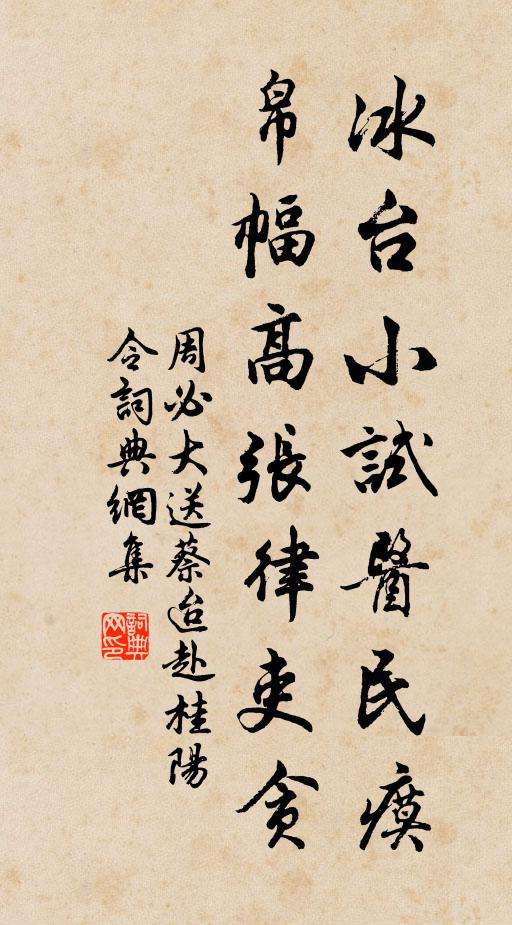 冰台小試醫民瘼
帛幅高張律吏貪
周必大送蔡迨赴桂陽
令詞典網集
詞典网印